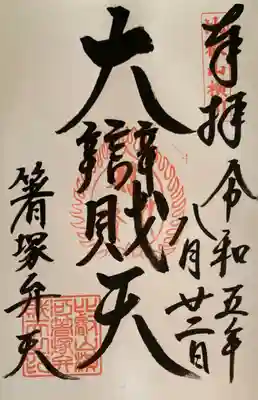 奉拝
令和五年
八月廿二日
大辯財天
箸塚弁天